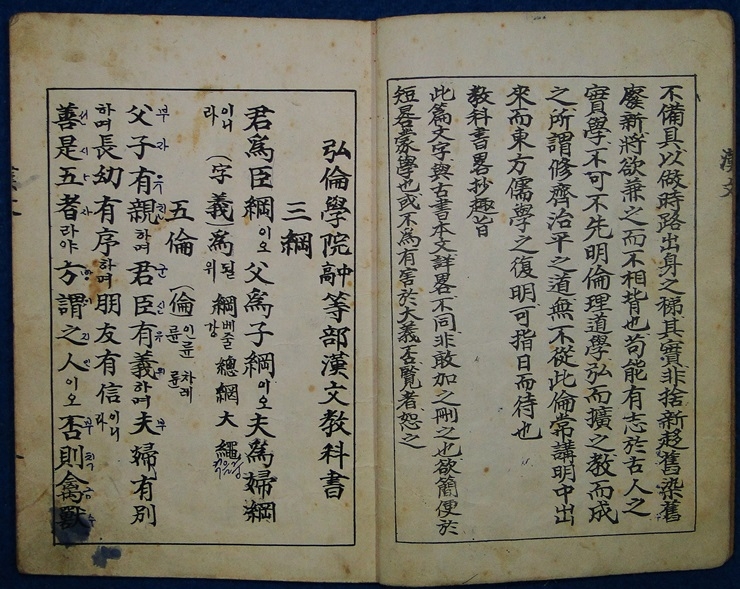 不備具以做時路出身之梯其實非捨新趍舊染舊
廢新將欲兼之而不相背也苟能有志於古人之
實學不可不先明倫理道學弘而擴之教而成
之所謂修齊治平之道無不從此倫常講明中出
來而東方儒學之復明可指日而待也
教科書畧抄趣旨
此篇文字與古書本文詳畧不同非敢加之刪之也欲簡便於
短晷蒙學也或不為有害於大義否覽者恕之
弘倫學院高中等部漢文教科書
三綱
君爲臣綱이오父爲子綱이오夫爲婦綱
이니라 (字義)爲될위 綱벼줄강 總網大繩
五倫 (倫인륜륜 차례륜
父子有親하며君臣有義하며夫婦有別
하며長幼有序하며朋友有信이니라
善是五者라야方謂之人이오否則禽獸